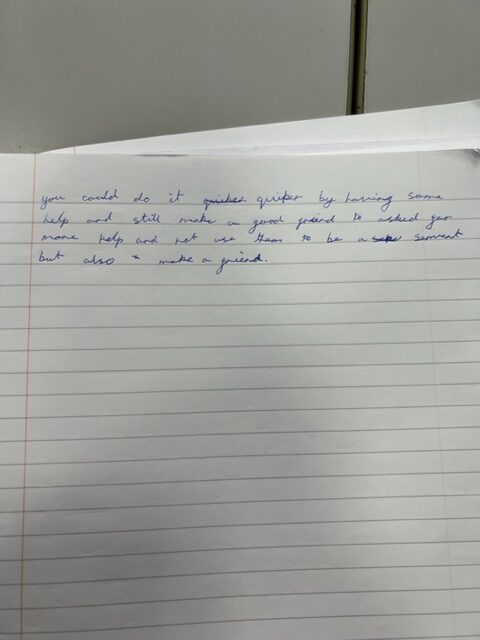 you could do it quicker quiker by having some
help and still make a good friend to asked for
more help and not use them to be a serv servent
but also make a friend.